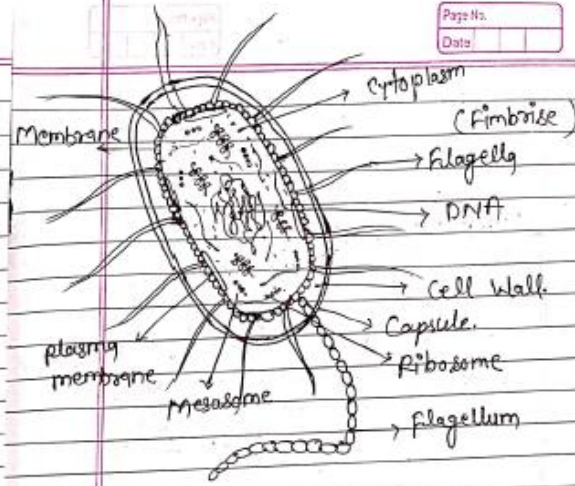 Page No.
Date
Cytoplasm
(Fimbrise)
Membrane
Filagella
DNA
Cell Wall.
Capsule.
plasma
membrane
Ribosome
Mesasome
flagellum